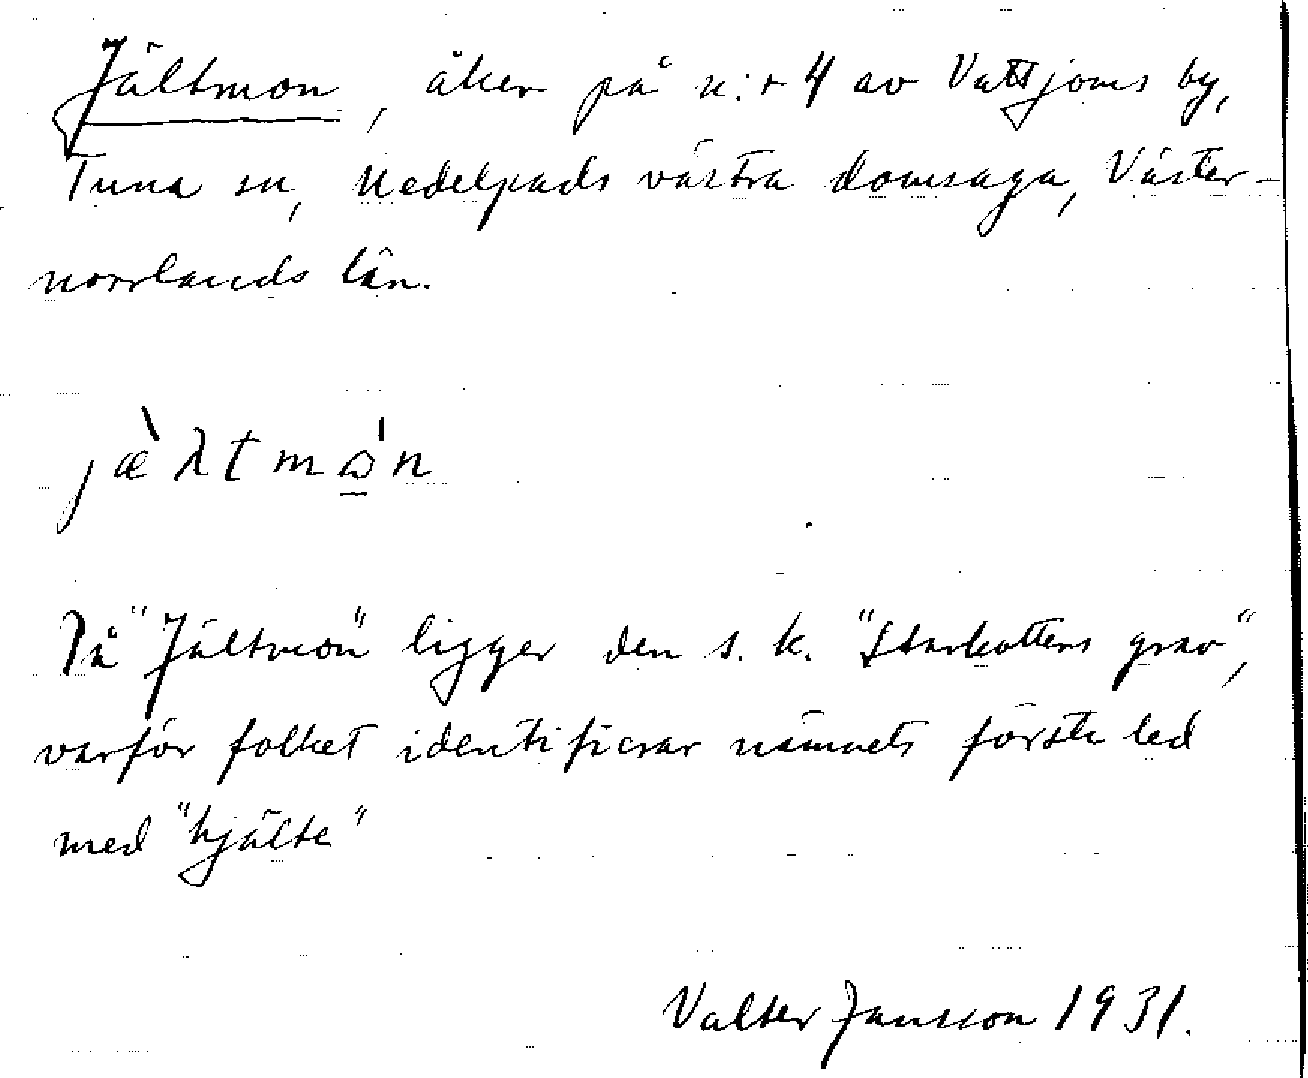 Jältmon, åker på n:r 4 av Vattjoms by,
Tuna sn, Medelpads västra domsaga, Väster-
norrlands län.
jæ̀λtmɷ̠̍n
På "Jältmon" ligger den s. k. "Starkotters grav",
varför folket identifierar namnets första led
med "hjälte"
Valter Jansson 1931.